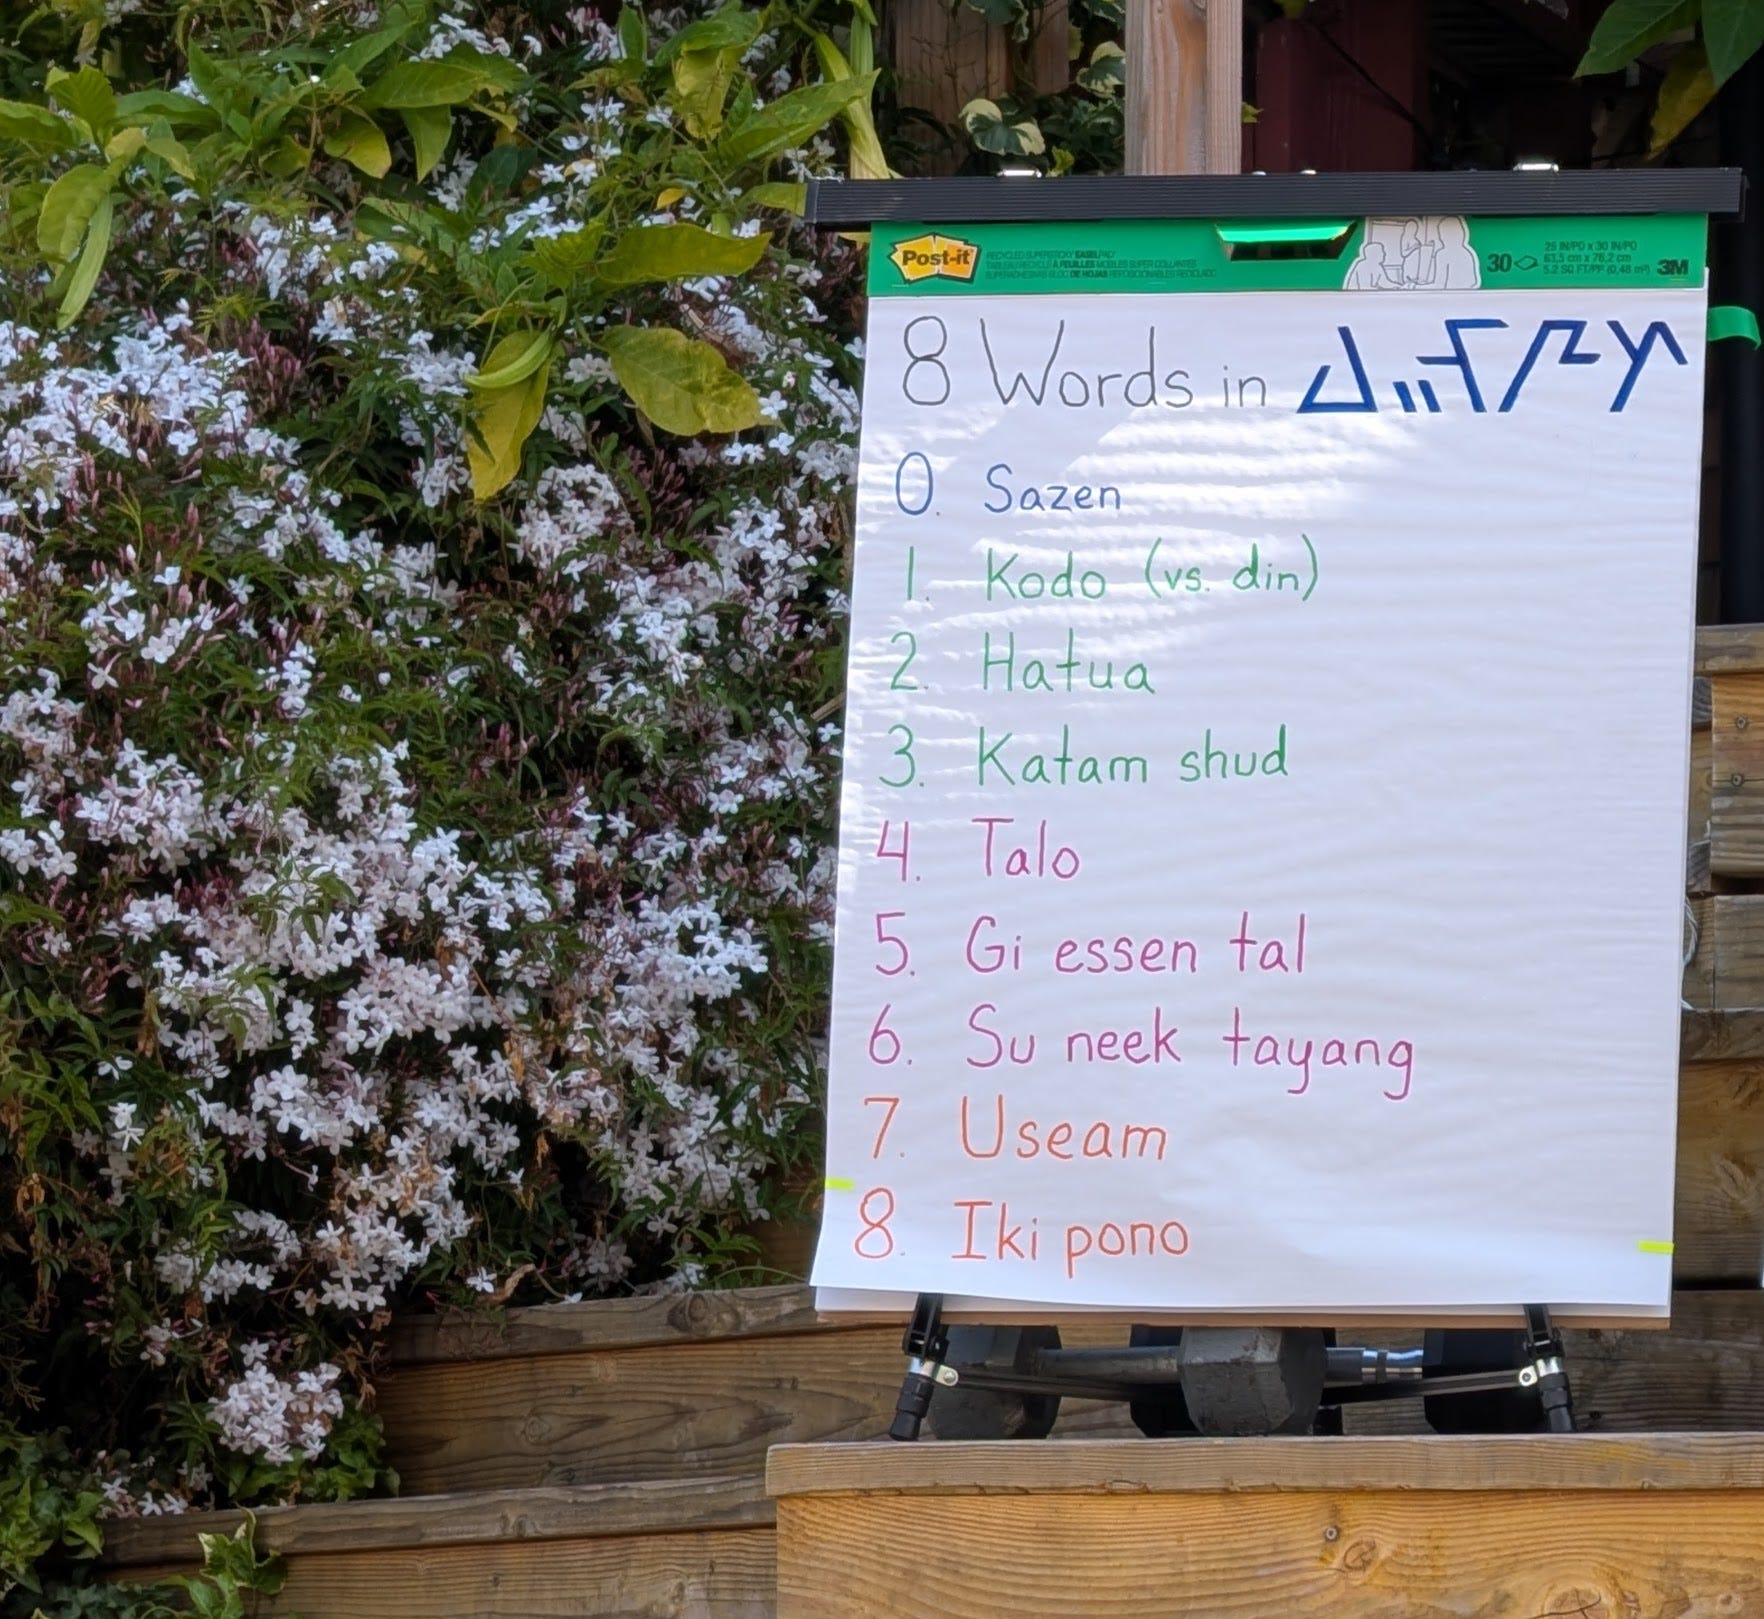 Post-it
RECYCLED SUPERSTICKY EASEL PAD
30
25 IN/PO x 30 IN/PO
63,5 cm x 76,2 cm
5.2 SQ FT/PI² (0,48 m²)
3M
8 Words in
0. Sazen
1. Kodo (vs. din)
2. Hatua
3. Katam shud
4. Talo
5. Gi essen tal
6. Su neek tayang
7. Useam
8. Iki pono